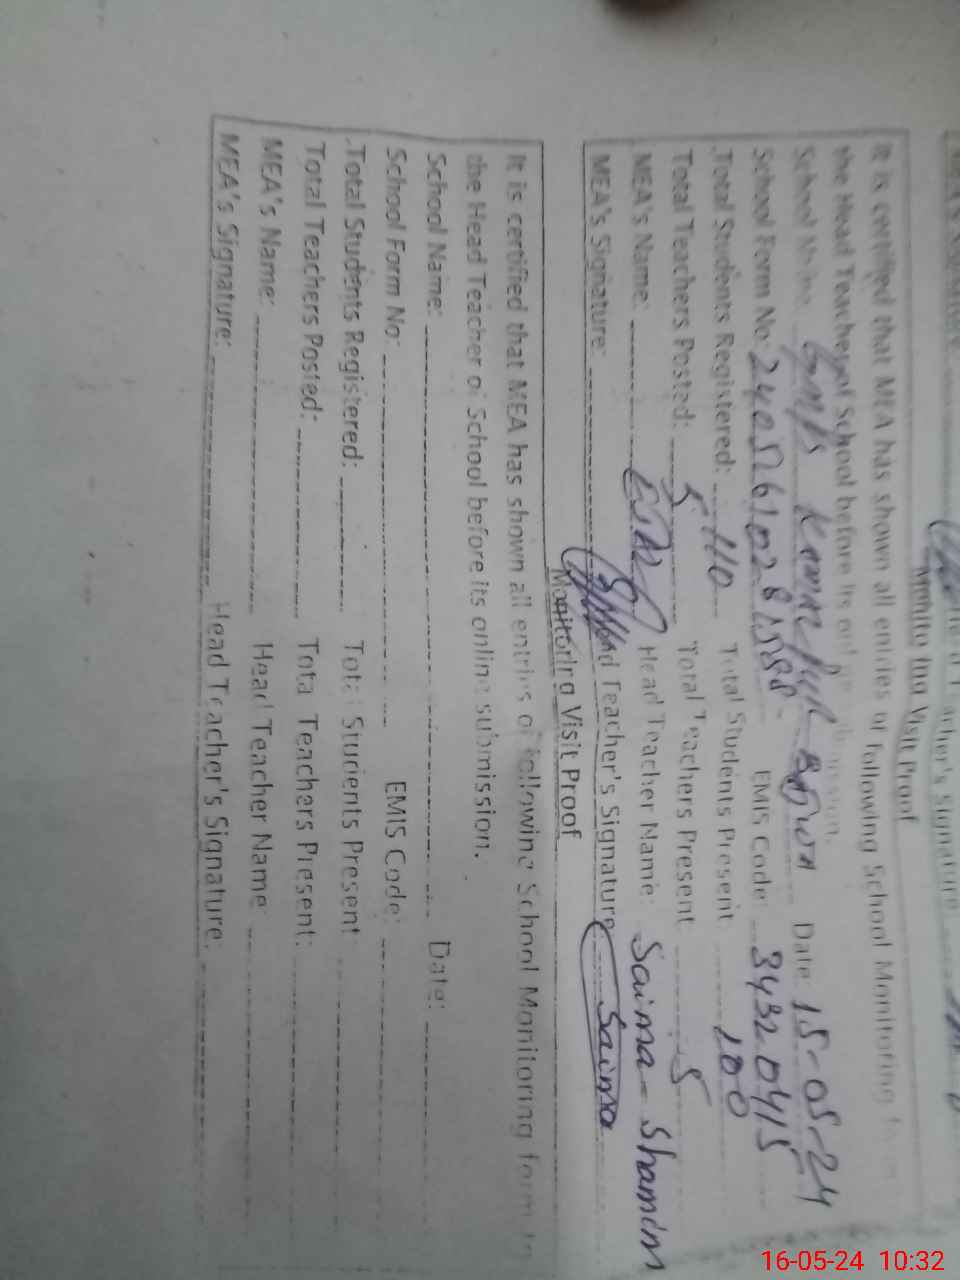 Teacher's Signature
Monitoring Visit Proof
It is certified that MEA has shown all entries of following School Monitoring
the Head Teacher of School before its online submission.
School Name: GMPS Date: 15-05-24
School Form No: EMIS Code: 34320415
Total Students Registered: 110 Total Students Present: 100
Total Teachers Posted: 5 Total Teachers Present: 5
MEA's Name: Head Teacher Name: Saima Shamim
MEA's Signature: Head Teacher's Signature: Saima
Monitoring Visit Proof
It is certified that MEA has shown all entries of following School Monitoring form to
the Head Teacher of School before its online submission.
School Name: Date:
School Form No: EMIS Code:
Total Students Registered: Total Students Present
Total Teachers Posted: Total Teachers Present:
MEA's Name: Head Teacher Name
MEA's Signature: Head Teacher's Signature:
16-05-24 10:32